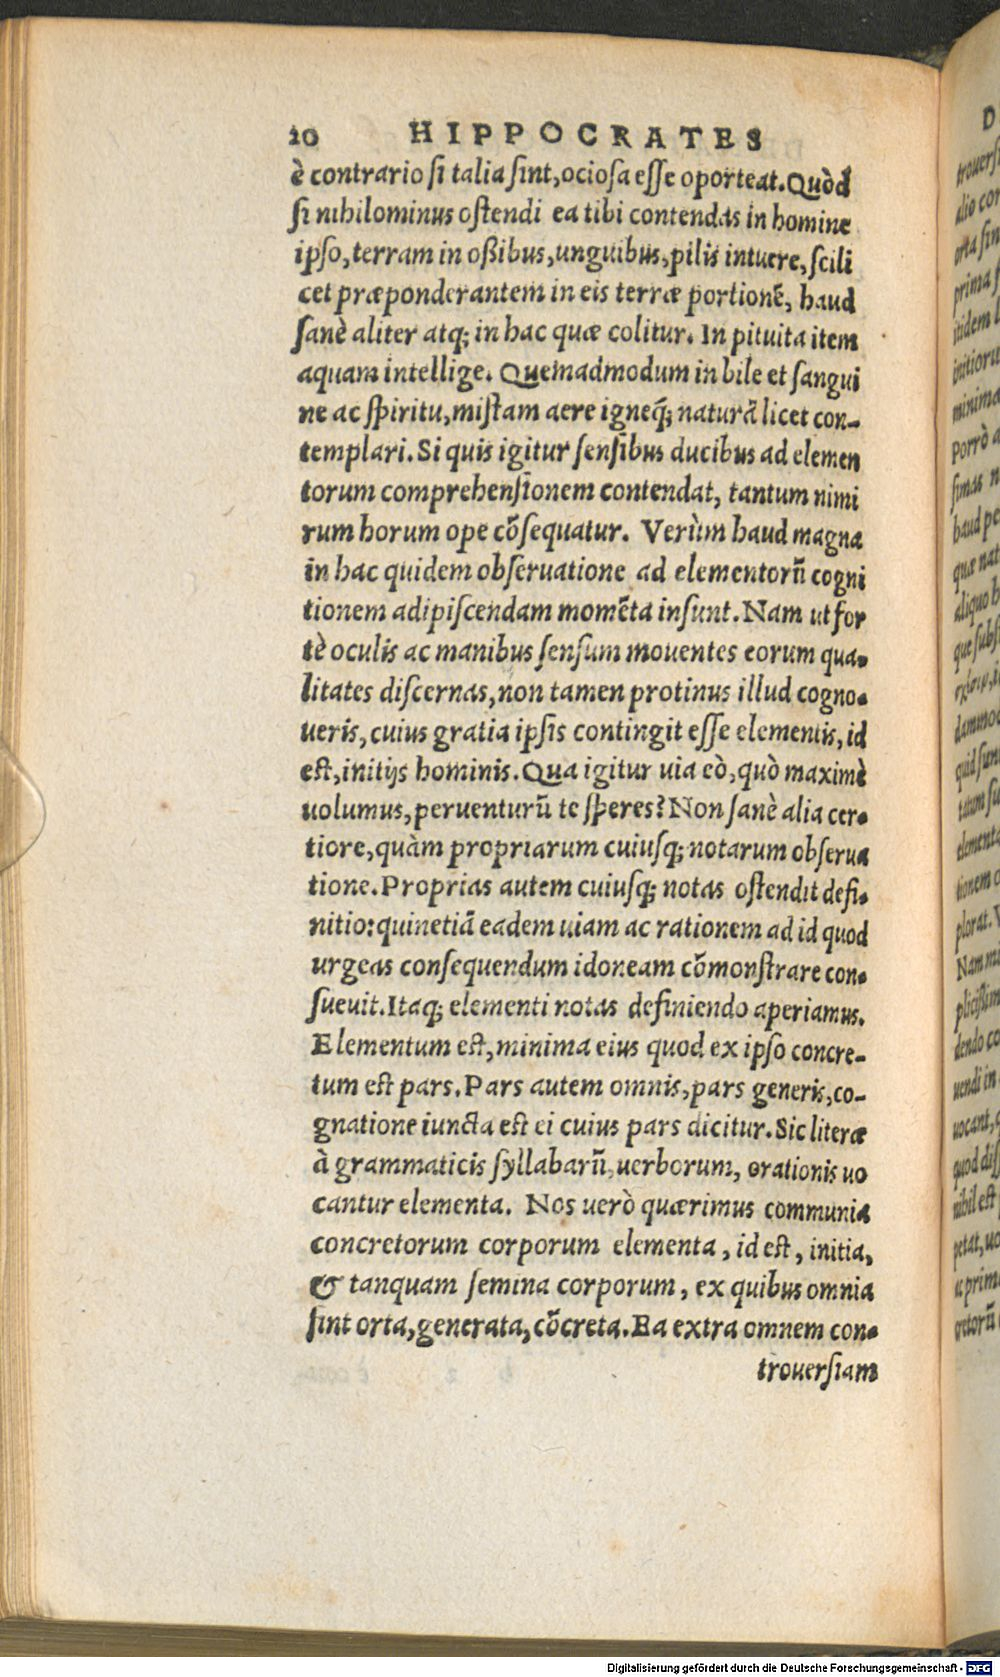 20 HIPPOCRATES
è contrario si talia sint, ociosa esse oporteat. Quòd
si nihilominus ostendi ea tibi contendas in homine
ipso, terram in oßibus, unguibus, pilis intuere, scili
cet præponderantem in eis terræ portionē, haud
sanè aliter atq; in hac quæ colitur. In pituita item
aquam intellige. Quemadmodum in bile et sangui
ne ac spiritu, mistam aere igneq́; naturā licet con-
templari. Si quis igitur sensibus ducibus ad elemen
torum comprehensionem contendat, tantum nimi
rum horum ope cōsequatur. Verùm haud magna
in hac quidem obseruatione ad elementorū cogni
tionem adipiscendam momēta insunt. Nam ut for
tè oculis ac manibus sensum mouentes eorum qua-
litates discernas, non tamen protinus illud cogno-
ueris, cuius gratia ipsis contingit esse elementis, id
est, initijs hominis. Qua igitur uia eò, quò maximè
uolumus, peruenturū te speres? Non sanè alia cer-
tiore, quàm propriarum cuiusq; notarum obserua
tione. Proprias autem cuiusq; notas ostendit defi-
nitio: quinetiā eadem uiam ac rationem ad id quod
urgeas consequendum idoneam cōmonstrare con-
sueuit. Itaq; elementi notas definiendo aperiamus.
Elementum est, minima eius quod ex ipso concre-
tum est pars. Pars autem omnis, pars generis, co-
gnatione iuncta est ei cuius pars dicitur. Sic literæ
à grammaticis syllabarū, uerborum, orationis uo
cantur elementa. Nos uerò quærimus communia
concretorum corporum elementa, id est, initia,
& tanquam semina corporum, ex quibus omnia
sint orta, generata, cōcreta. Ea extra omnem con-
trouersiam
Digitalisierung gefördert durch die Deutsche Forschungsgemeinschaft - DFG